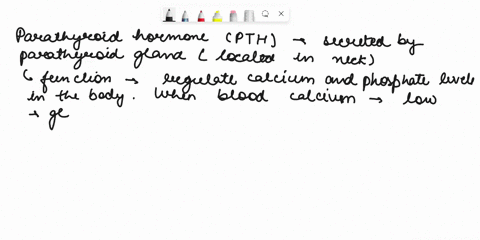 Parathyroid hormone (PTH) → secreted by
parathyroid gland ( located in neck)
↳ function → regulate calcium and phosphate levels
in the body. When blood calcium → low
→ gl